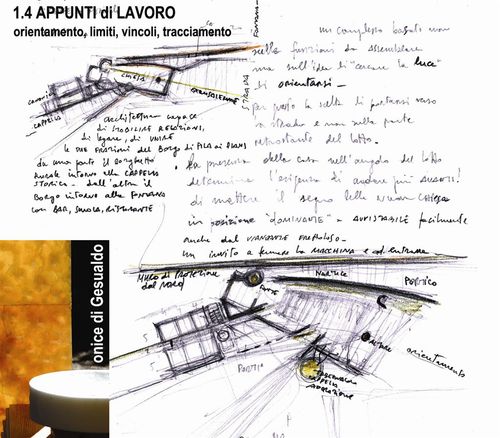 1.4 APPUNTI di LAVORO
orientamento, limiti, vincoli, tracciamento
FONTANA
STRADA
CHIESA
CANONICA
CAPPELLA
un complesso basato non
sulla funzione da assemblare
ma sull'idea di "cercare la luce"
di orientarsi -
per questo la scelta di portarsi verso
la strada e non nella parte
retrostante del lotto.
architettura capace
di STABILIRE RELAZIONI,
di legare, di UNIRE
LE DUE FRAZIONI del Borgo di PILA ai PIANI
da una parte il Borghetto
Rurale intorno alla CAPPELLA
STORICA - dall'altra il
Borgo intorno alla FONTANA
con BAR, SCUOLA, RISTORANTE
La presenza della casa nell'angolo del lotto
determina l'esigenza di andare più AVANTI!
di mettere il segno della NUOVA CHIESA
in posizione "DOMINANTE" - AVVISTABILE facilmente
anche dal VIANDANTE FRETTOLOSO -
un invito a fermare la MACCHINA e ad entrare
MURO di PROTEZIONE
dal NORD
NARTECE
PORTICO
FONTE
ALTARE
orientamento
PORTICO
CAPPELLA
ADORAZIONE
onice di Gesualdo